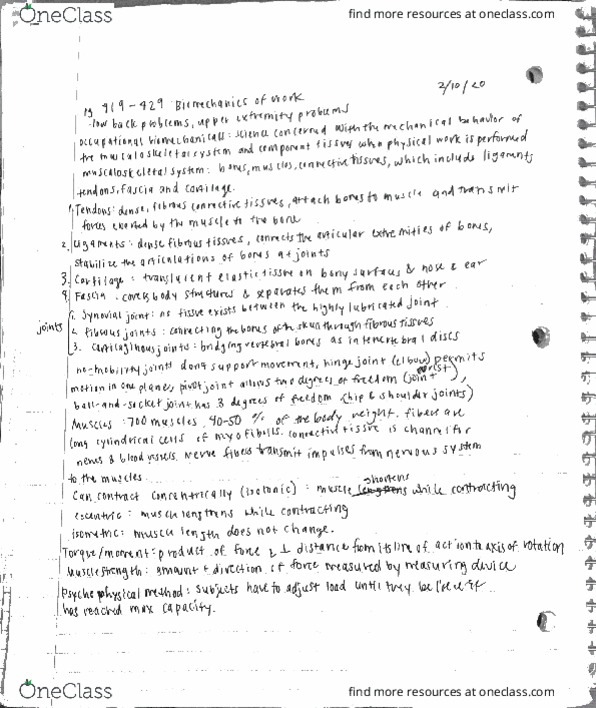 OneClass
find more resources at oneclass.com
2/10/20
pg 419-429 Biomechanics of work
-low back problems, upper extremity problems
occupational biomechanicals: science concerned with the mechanical behavior of
the musculoskeletal system and component tissues when physical work is performed
musculoskeletal system: bones, muscles, connective tissues, which include ligaments,
tendons, fascia and cartilage.
1. Tendons: dense, fibrous connective tissues, attach bones to muscle and transmit
forces exerted by the muscle to the bone
2. Ligaments: dense fibrous tissues, connects the articular extremities of bones,
stabilize the articulations of bones at joints
3. Cartilage: translucent elastic tissue on bony surfaces & nose & ear
4. Fascia: covers body structures & separates them from each other.
joints
1. Synovial joint: no tissue exists between the highly lubricated joint.
2. Fibrous joints: connecting the bones of the skull through fibrous tissues
3. Cartilaginous joints: bridging vertebral bones as in intervertebral discs
no-mobility joints don't support movement, hinge joint (elbow) permits
motion in one plane, pivot joint allows two degrees of freedom (wrist joint),
ball-and-socket joint has 3 degrees of freedom (hip & shoulder joints)
Muscles: 700 muscles. 40-50 % of the body weight. fibers are
long cylindrical cells of myofibills. connective tissue is channel for
nerves & blood vessels. nerve fibers transmit impulses from nervous system
to the muscles.
Can contract concentrically (isotonic): muscle shortens while contracting
eccentric: muscle lengthens while contracting
isometric: muscle length does not change.
Torque/moment: product of force & ⊥ distance from its line of action to axis of rotation
Muscle strength: amount & direction of force measured by measuring device
Psychophysical method: subjects have to adjust load until they believe it
has reached max capacity.
OneClass
find more resources at oneclass.com